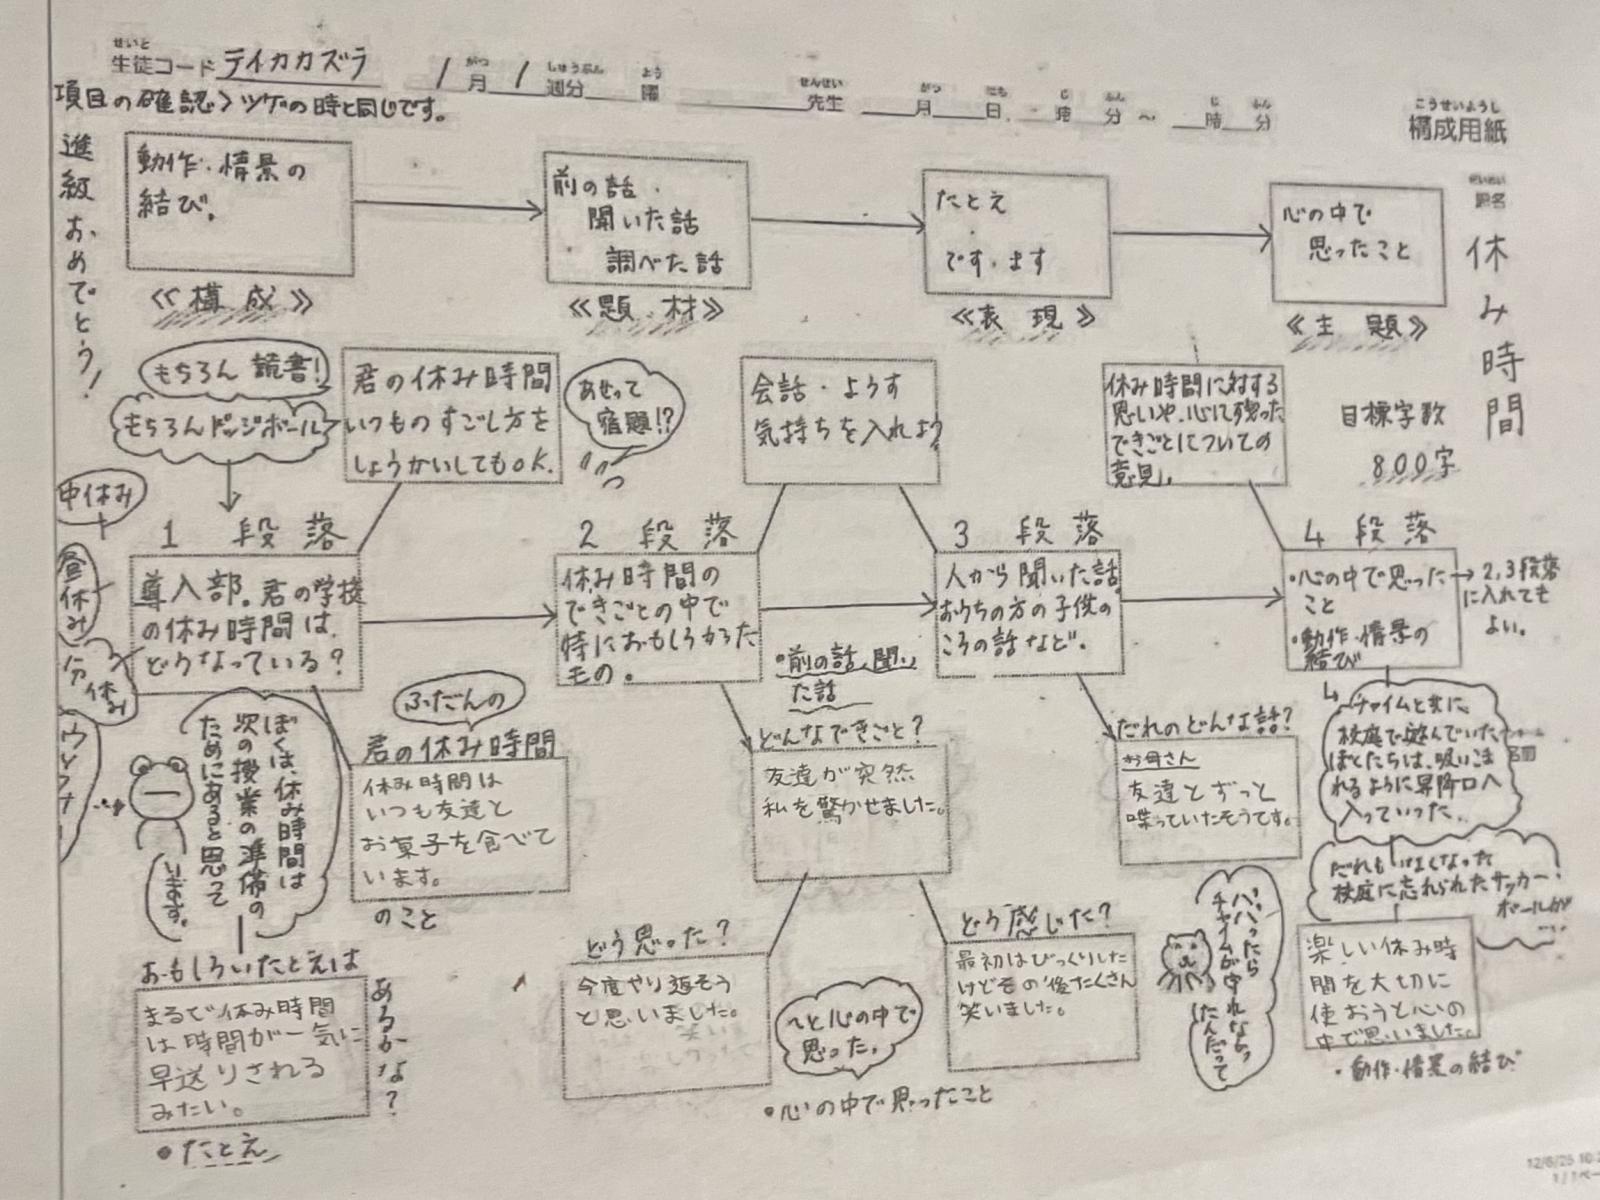 生徒コード テイカカズラ
/月/週分 曜 先生 月 日 時 分 〜 時 分
構成用紙
項目の確認〉ツゲの時と同じです。
進級おめでとう!
題名
休み時間
動作・情景の
結び。
《構成》
前の話・
聞いた話
調べた話
《題材》
たとえ
です・ます
《表現》
心の中で
思ったこと
《主題》
目標字数
800字
もちろん読書!
もちろんドッジボール
君の休み時間
いつものすごし方を
しょうかいしてもOK.
あせって
宿題!?
会話・ようす
気持ちを入れよう
休み時間に対する
思いや、心に残った
できごとについての
意見。
中休み
昼休み
1 段落
導入部。君の学校
の休み時間は、
どうなっている?
2 段落
休み時間の
できごとの中で
特におもしろかった
もの。
3 段落
人から聞いた話。
おうちの方の子供の
ころの話など。
4 段落
・心の中で思った
こと
・動作・情景の
結び
→2,3段落
に入れても
よい。
ぼくは、休み時間は
次の授業の準備の
ためにあると思って
います。
ふだんの
君の休み時間
休み時間は
いつも友達と
お菓子を食べて
います。
のこと
・前の話、聞い
た話
どんなできごと?
友達が突然
私を驚かせました。
だれのどんな話?
お母さん
友達とずっと
喋っていたそうです。
チャイムと共に
校庭で遊んでいた
ぼくたちは、吸いこま
れるように昇降口へ
入っていった。
だれもいなくなった
校庭に忘れられたサッカー
ボールが
……
おもしろいたとえは
あるかな?
まるで休み時間
は時間が一気に
早送りされる
みたい。
・たとえ
どう思った?
今度やり返そう
と思いました。
〜と心の中で
思った。
・心の中で思ったこと
どう感じた?
最初はびっくりした
けどその後たくさん
笑いました。
楽しい休み時
間を大切に
使おうと心の
中で思いました。
・動作・情景の結び